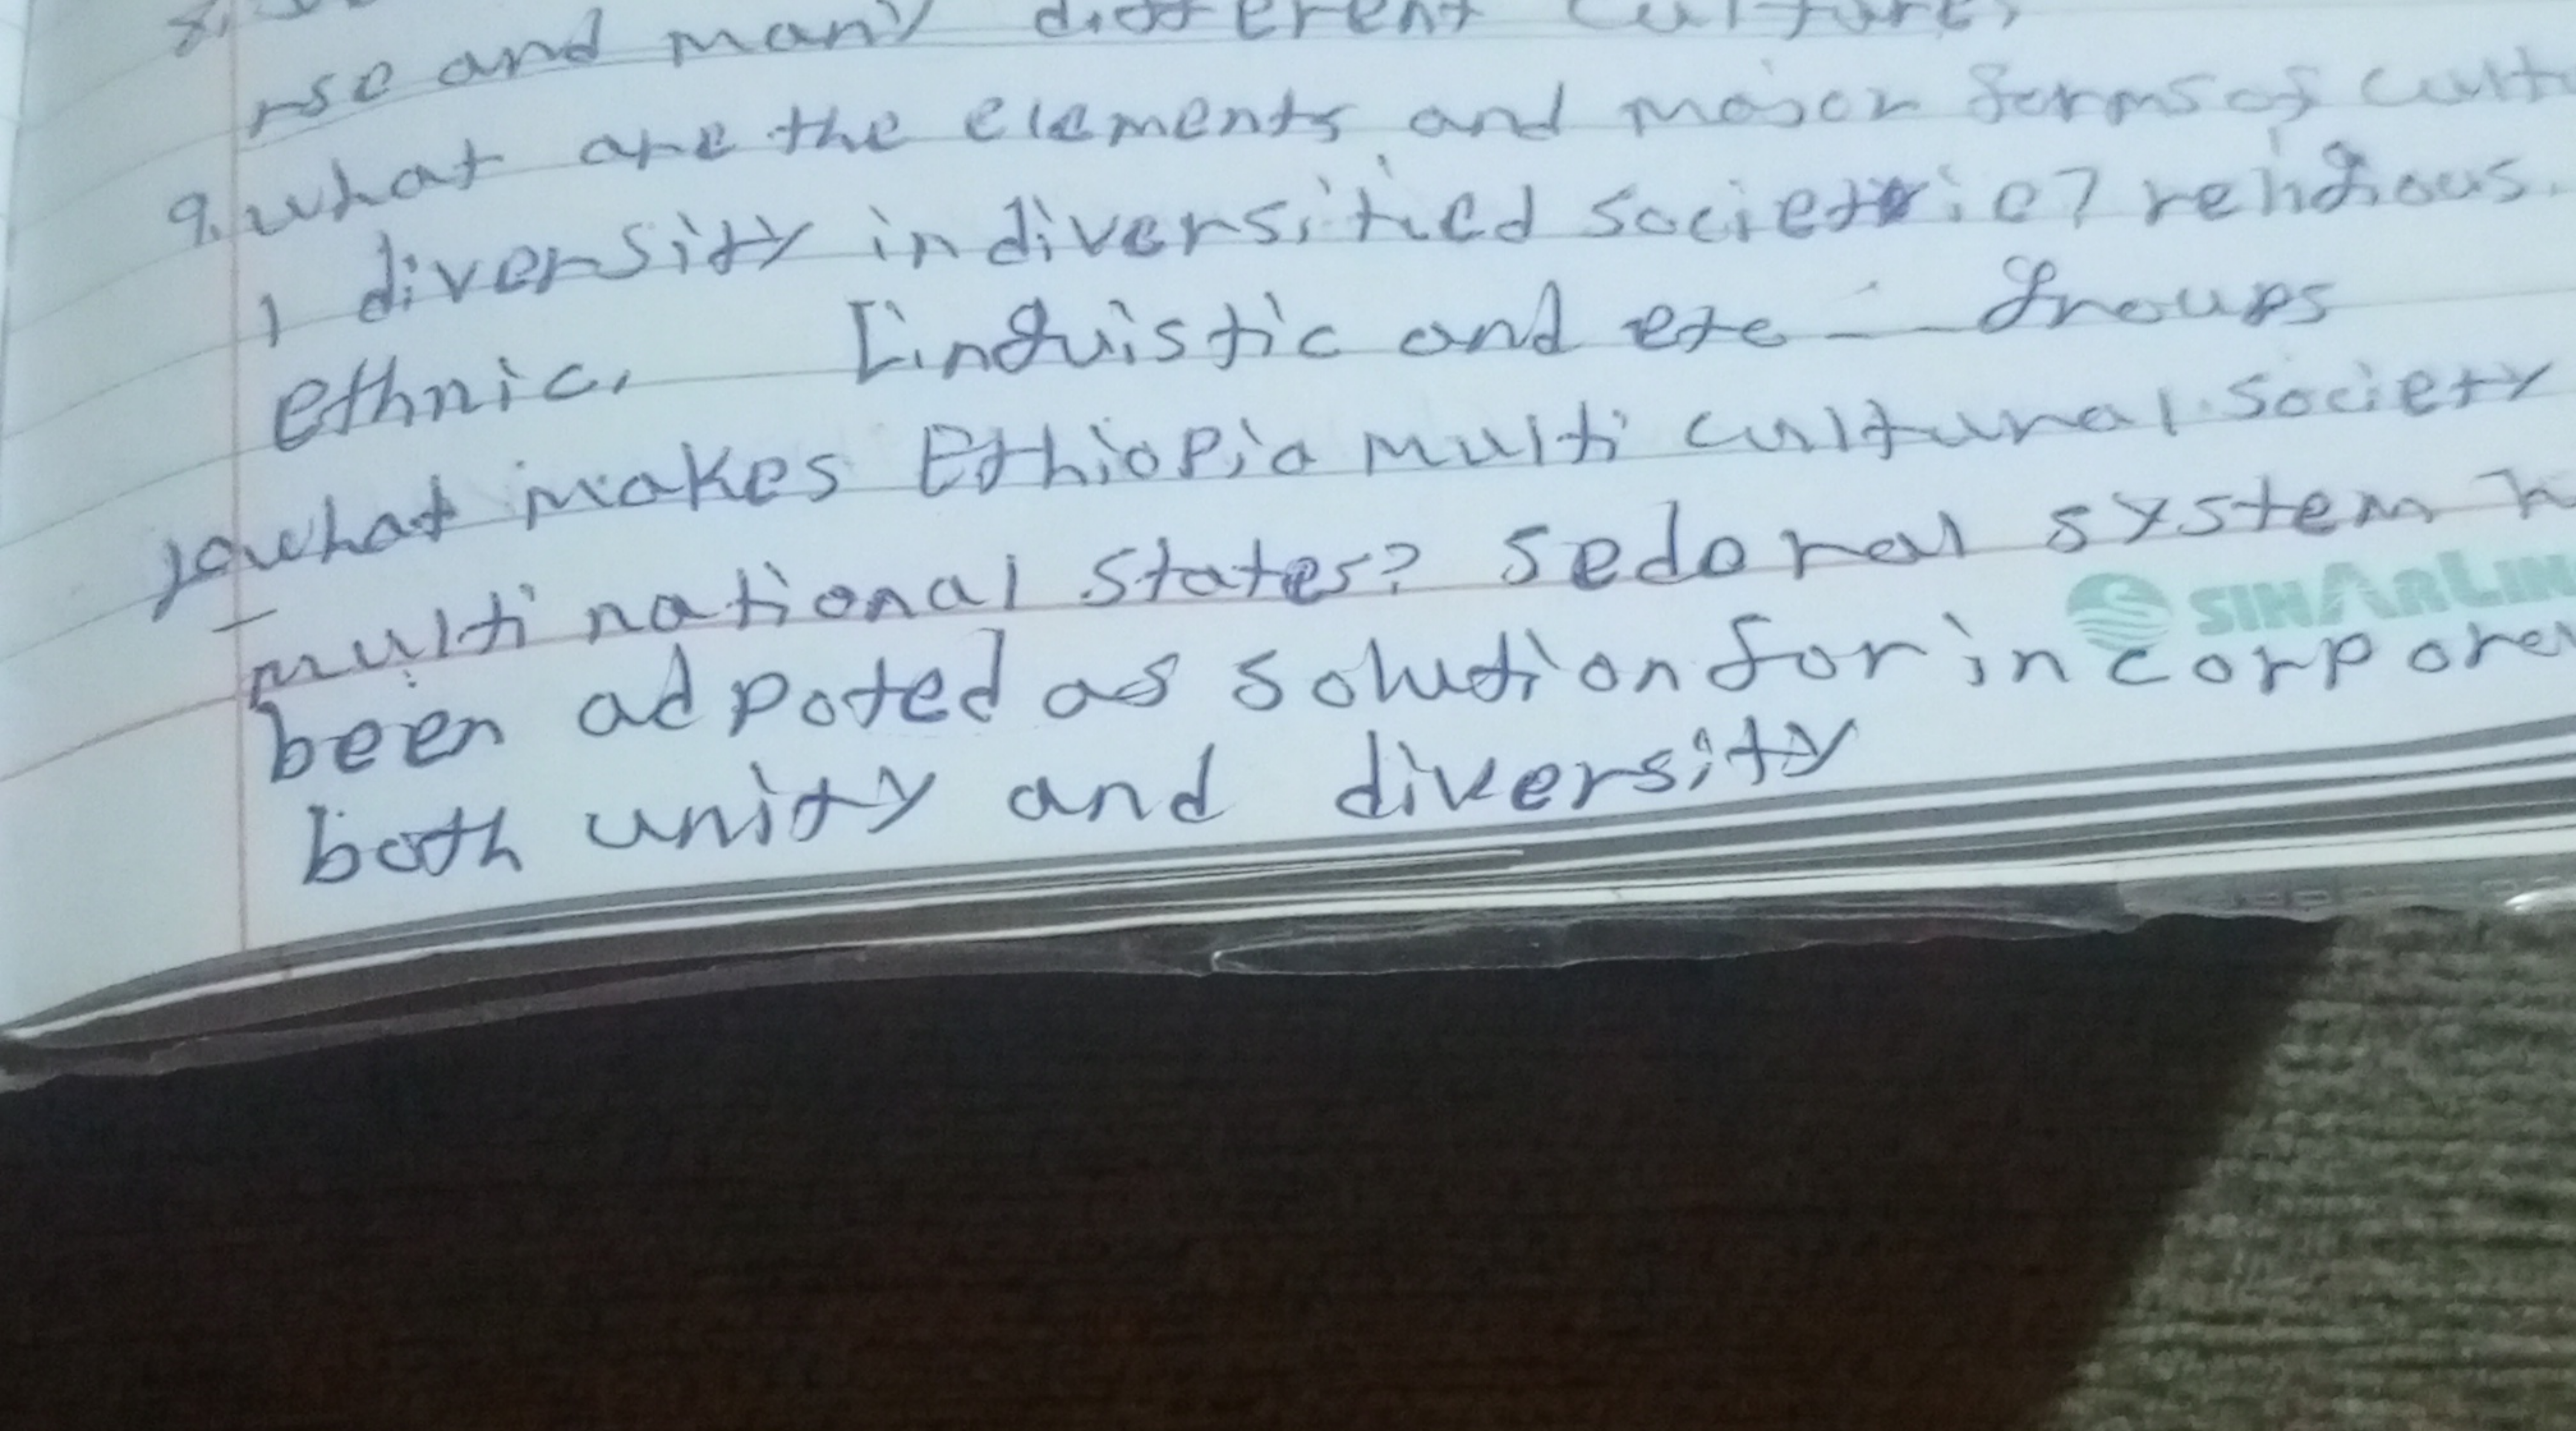 8.
rse and many different cultures
9. what are the elements and major forms of cultu
l diversity in diversified societie? religious.
ethnic, Linguistic and etc - - Groups
10 what makes Ethiopia multi cultural society
multi national states? Sedoral system h
been adpoted as solution for in corpore
both unity and diversity
SINARLIN